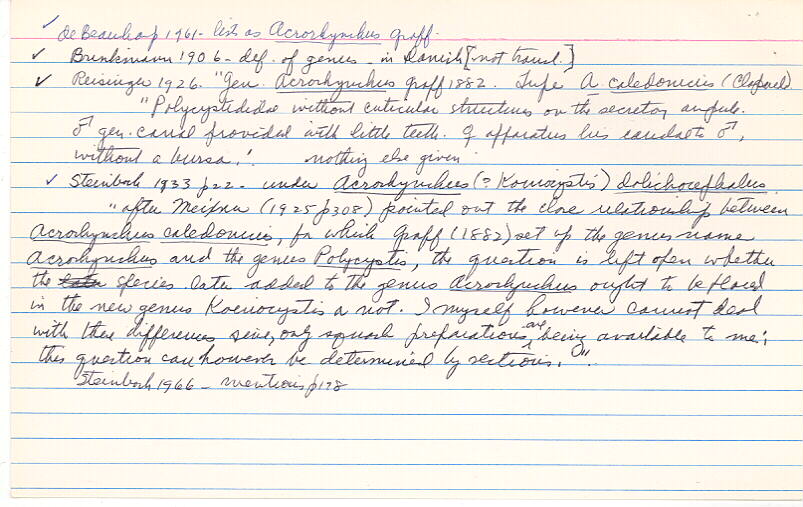 ✓ de Beauchamp 1961 - lists as Acrorhynchus Graff.
✓ Brinkmann 1906 - def. of genus - in Danish [not transl.]
✓ Reisinger 1926. "Gen. Acrorhynchus Graff 1882. Type A. caledonicus (Claparéd)
"Polycystididae without cuticular structures on the secretory ampule.
♂ gen. canal provided with little teeth. ♀ apparatus lies caudal to ♂,
without a bursa." nothing else given
✓ Steinbock 1933 p22 - under Acrorhynchus (? Koinocystis) dolichocephalus
"after Meixner (1925 p308) pointed out the close relationship between
Acrorhynchus caledonicus, for which Graff (1882) set up the genus name
Acrorhynchus and the genus Polycystis, the question is left open whether
the species later added to the genus Acrorhynchus ought to be placed
in the new genus Koinocystis or not. I myself however cannot deal
with these differences, since only squash preparations are being available to me;
this question can however be determined by sections."
Steinbock 1966 - mentions p178